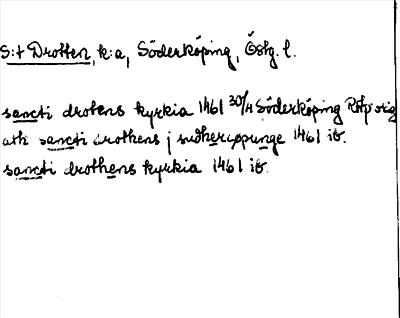 S:t Drotten, k:a, Söderköping, Östg. l.
sancti drotens kyrkia 1461 30/4 Söderköping Rhp orig
ath sancti drothens j sudhercøpunge 1461 ib.
sancti drothens kyrkia 1461 ib.